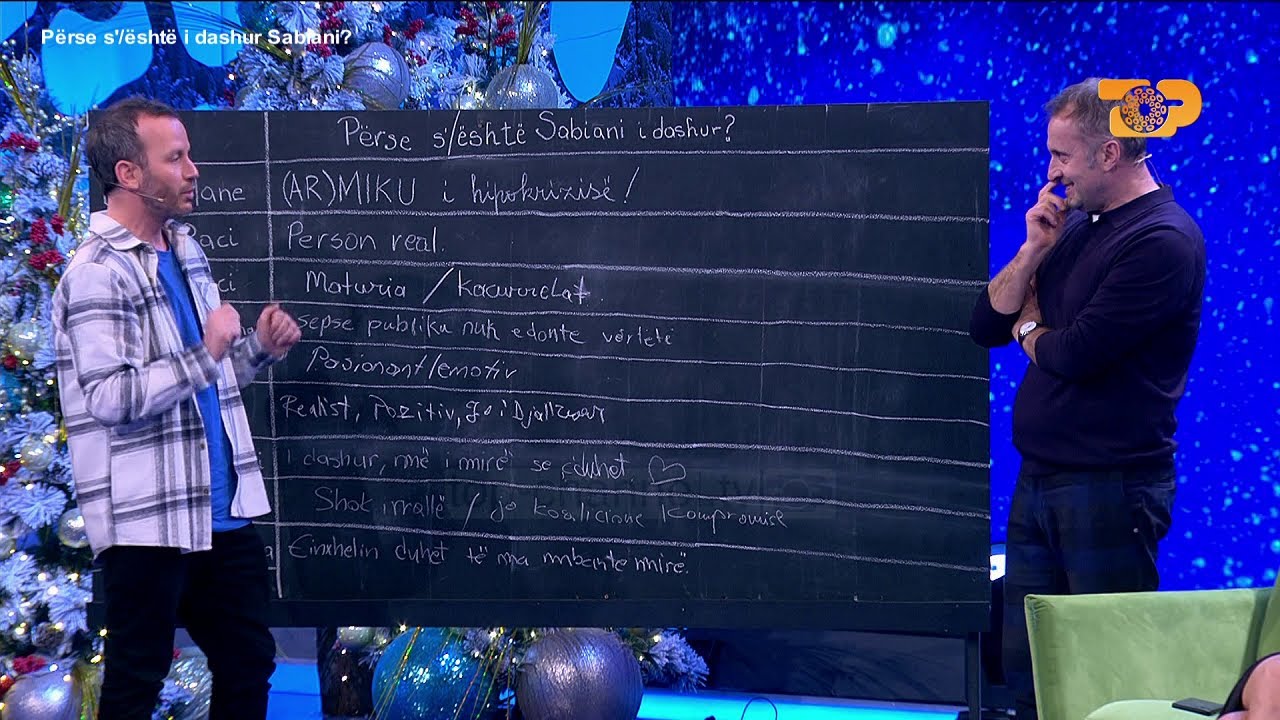 Përse s'/është i dashur Sabiani?
Përse s'/është Sabiani i dashur?
(AR)MIKU i hipokrizisë!
Person real.
Maturia /
sepse publiku nuk e donte vërtetë
Pasionant/emotiv
Realist, Pozitiv, jo i Djallëzuar
i dashur, më i mirë se ç'duhet
Shok i rrallë / jo koalicione kompromise
Einxhelin duhet të ma mbante mirë.